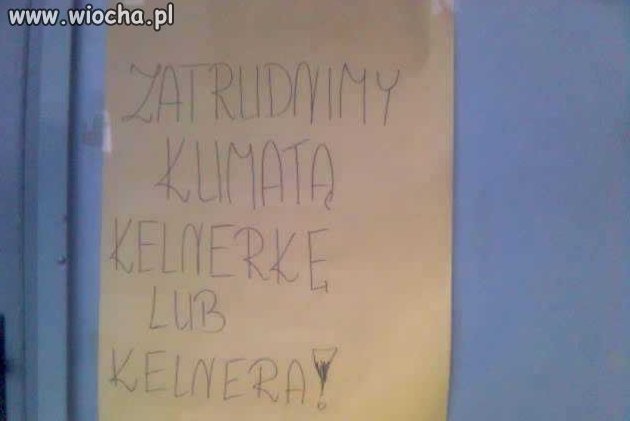 www.wiocha.pl
ZATRUDNIMY
KLIMATĄ
KELNERKĘ
LUB
KELNERA!